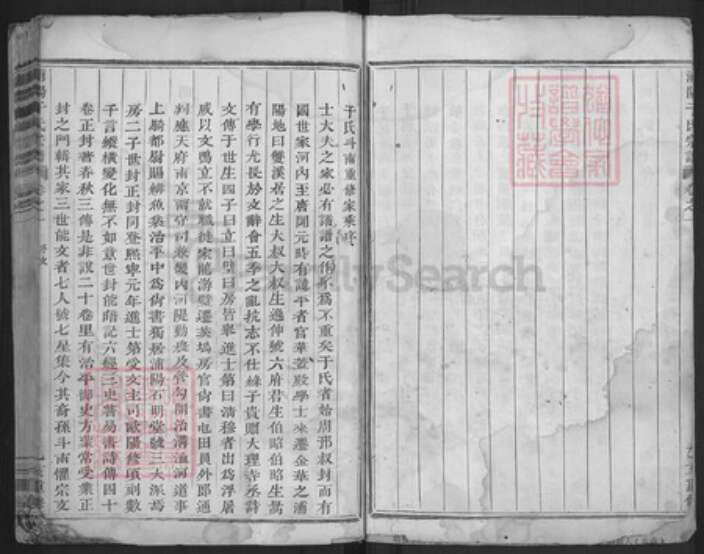 于氏斗南重修家乘序
士大夫之家必有譜譜之作所爲不重矣于氏者始周邘叔封而有
國世家河內至唐開元時有諱平者官華蓋殿學士來遷金華之浦
陽地曰雙溪居之生大叔大叔生通仲號六府君生伯昭伯昭生
有學行尤長於文辭會五季之亂抗志不仕緣子貴贈大理寺丞詩
文傳于世生四子曰立曰堅曰房皆舉進士第曰清穆者出爲浮屠
咸以文鳴立不就職徙家龍游堅遷葵塢房官尚書屯田員外郎通
判應天府南京畱守司兼畿內河隄勸農及管勾開治溝洫河道事
上騎都尉賜緋魚袋治平中爲尚書獨居浦陽石明堂號三大派焉
房二子世封正封同登熙寧元年進士第受文主司歐陽修頃刻數
千言縱橫變化無不如意世封能暗記六經三史著易書詩傳四十
卷正封著春秋三傳是非說二十卷里有治平御史方蒙常受業正
封之門輯其家三世能文者七人號七星集今其裔孫斗南懼宗支
序文
FamilySearch